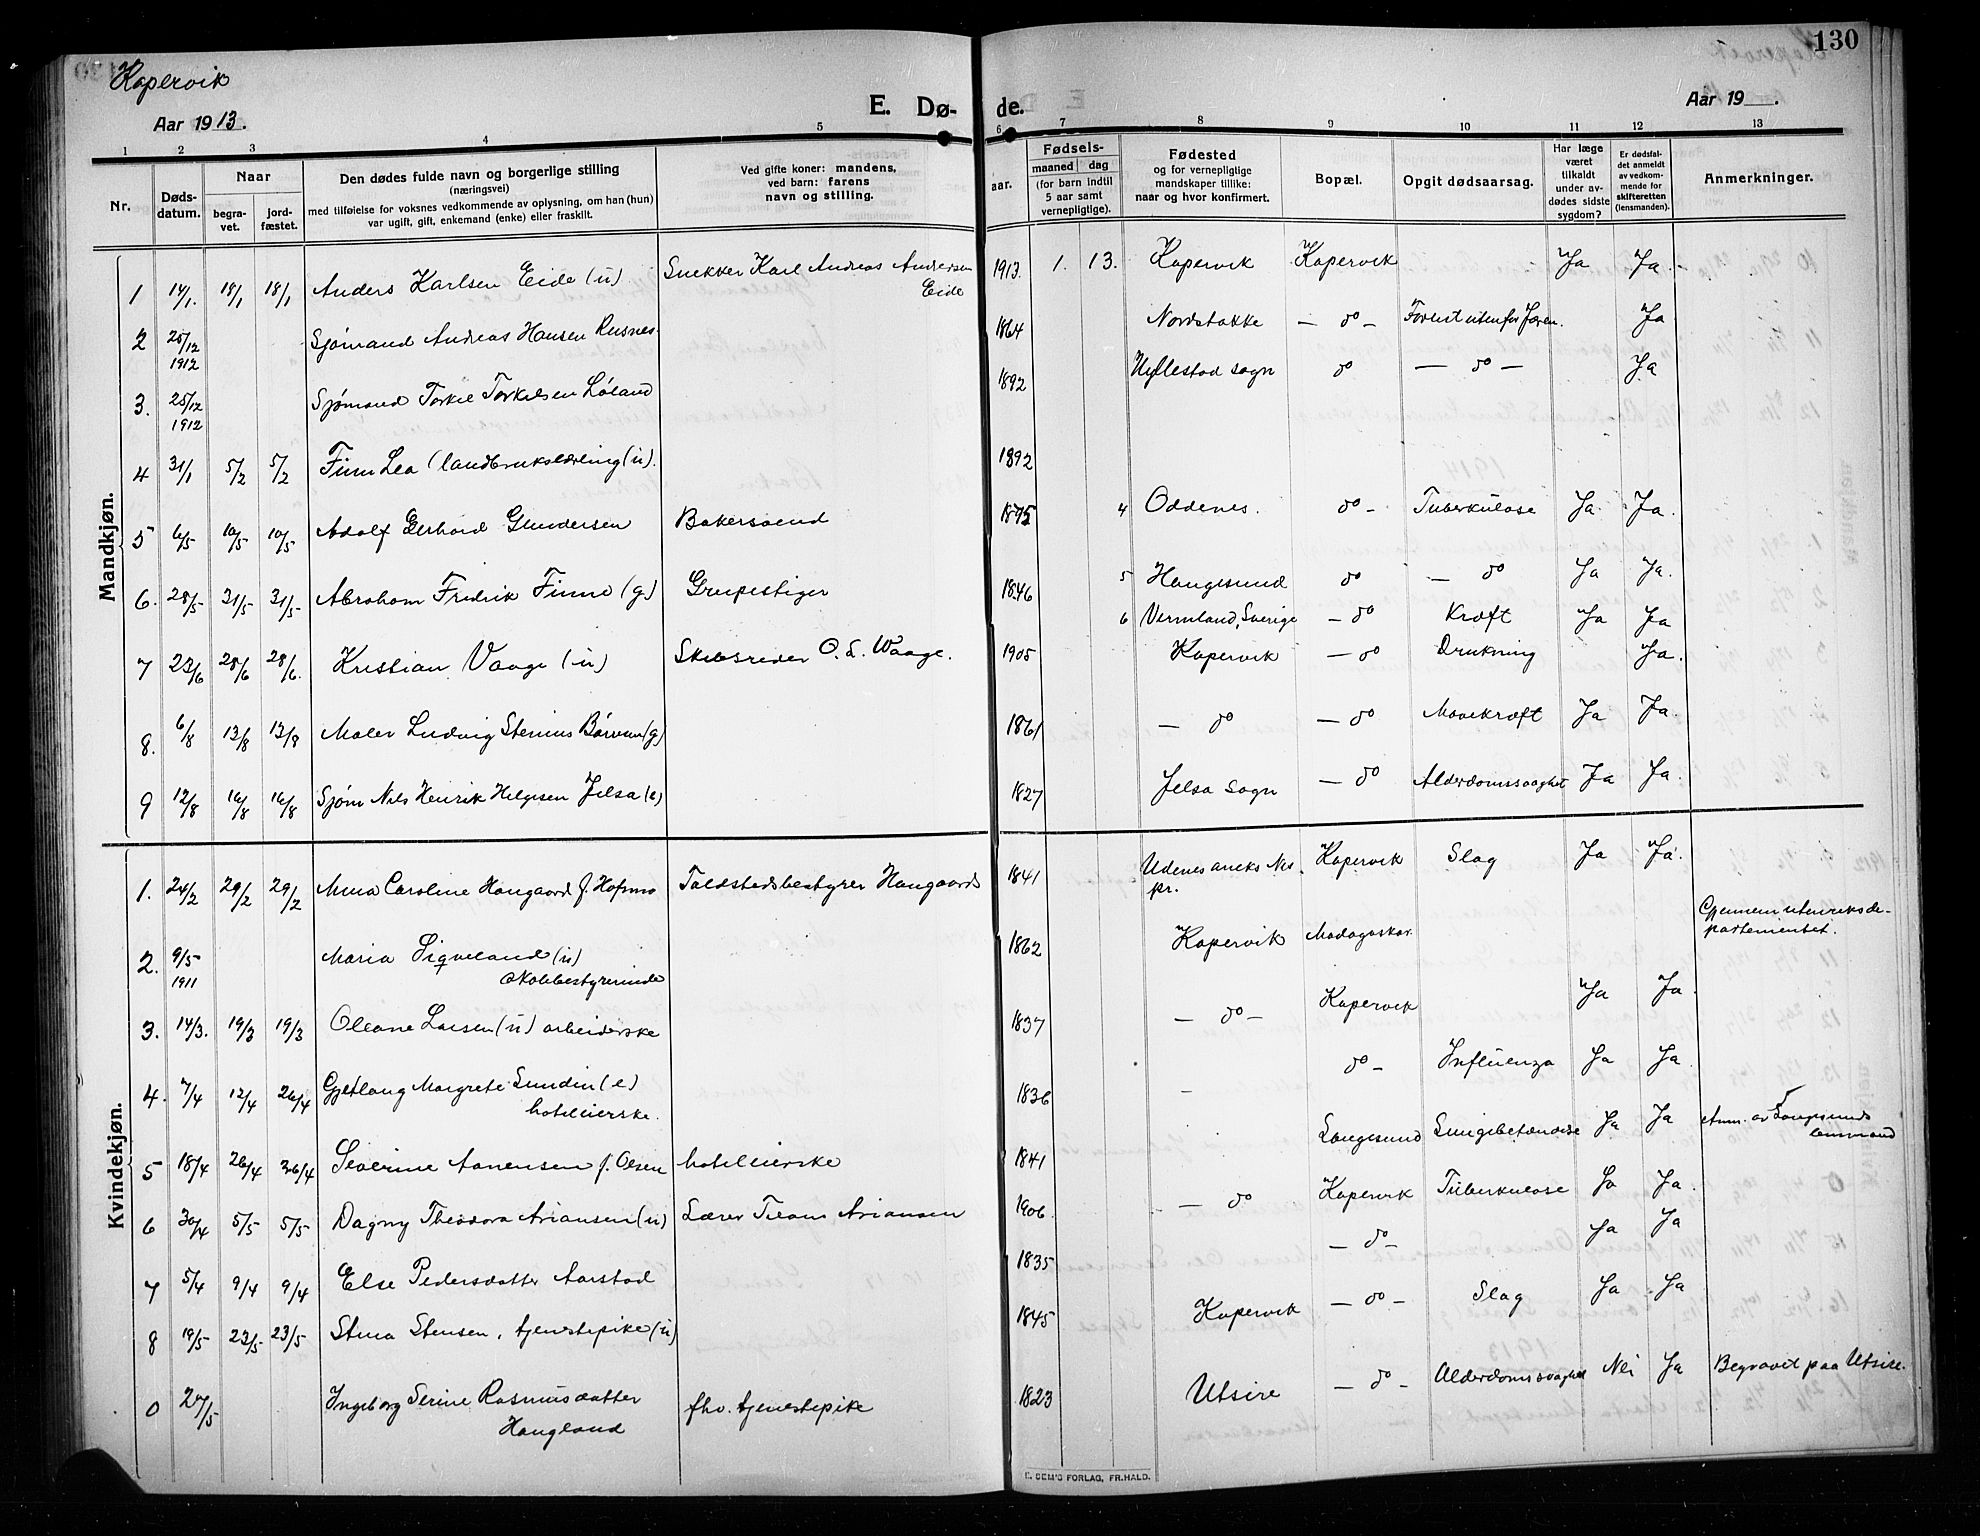 Kopervik
130
E. Dø-de.
Aar 1913.
Aar 19 .
1 2 3 4 5 6 7 8 9 10 11 12 13
Nr.
Døds-
datum.
Naar
begra-
vet.
jord-
fæstet.
Den dødes fulde navn og borgerlige stilling
(næringsvei)
med tilføielse for voksnes vedkommende av oplysning, om han (hun)
var ugift, gift, enkemand (enke) eller fraskilt.
Ved gifte koner: mandens,
ved barn: farens
navn og stilling.
aar.
Fødsels-
maaned dag
(for barn indtil
5 aar samt
vernepligtige).
Fødested
og for vernepligtige
mandskaper tillike:
naar og hvor konfirmert.
Bopæl.
Opgit dødsaarsag.
Har læge
været
tilkaldt
under av-
dødes sidste
sygdom?
Er dødsfal-
det anmeldt
av vedkom-
mende for
skifteretten
(lensmanden).
Anmerkninger.
Mandkjøn.
1 14/1. 18/1 18/1 Anders Karlsen Eide (u) Snekker Karl Andreas Andersen
Eide
1913. 1. 13. Kopervik Kopervik Ja Ja.
2 25/12
1912
Sjømand Andreas Hansen Rusnes.
1864 Nordstokke — do — Forlist utenfor Jæren. Ja
3. 25/12
1912
Sjømand Torkel Torkelsen Løland
1892 Hyllestad sogn do — do — Ja
4 31/1 5/2 5/2 Finn Lea (landbrukslærling (u).
1892 4 Oddenes. do - Tuberkulose Ja. Ja.
5 6/5 10/5 10/5 Adolf Gerhard Gundersen Bakersvend
1895 5 Haugesund do — do Ja Ja.
6. 28/5- 31/5- 31/5- Abraham Fredrik Finne (g.) Grupestiger
1846 6 Vermland, Sverige — do Kræft Ja Ja
7 23/6 28/6 28/6. Kristian Vaage (u) Skibsreder O. S. Waage.
1905 Kopervik — do Drukning Ja.
8. 6/8 13/8 13/8 Maler Ludvig Stenius (g)
1861 — do — do Mavekræft Ja Ja.
9 12/8 16/8 16/8 Sjøm Nils Henrik Helgesen Jelsa (e)
1827 Jelsa Sogn — do Alderdomssvaghet Ja Ja.
Kvindekjøn.
1. 24/2 29/2 29/2 Anna Caroline Haugaard f. Hofmo Toldstedsbestyrer Haugaards
1841 Udenes aneks Nes
pr.
Kopervik Slag Ja Ja.
2. 9/5
1911
Maria Sigveland (u)
skolebestyrerinde
1862 Kopervik Madagaskar. Gjennem utenriksde-
partementet.
3. 14/3. 19/3 19/3 Oleane Larsen (u) arbeiderske
1837 — do — Kopervik Ja Ja.
4. 7/4 12/4 26/4 Gjetlaug Margrete Lundin (e)
hoteleierske.
1836 - do — Influenza Ja Ja.
5 18/4 26/4 26/4 Severine Aanensen f. Olsen hoteleierske
1841 Langesund Lungebetændelse Ja Ja Anm. av Langesunds
lensmand
6 30/4 5/5- 5/5- Dagny Theodora Ariansen (u) Lærer Ariansen
1906 — do Kopervik Tuberkulose Ja Ja.
7 5/4 9/4 9/4 Else Pedersdatter Aarstad
1835 — do — Ja Ja
8 19/5- 23/5- 23/5- Stina Stensen, tjenestepike (u)
1845 Kopervik — do — Slag Ja Ja
0 27/5 Ingeborg Serine Rasmusdatter
Haugland
fhv. tjenestepike
1823 Utsire — do — Alderdomssvaghet Nei Ja Begravet paa Utsire.
E. SEM'S FORLAG, FR.HALD.